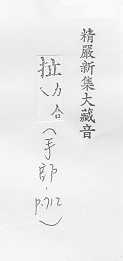 精嚴新集大藏音
拉力合(手部,p.712)